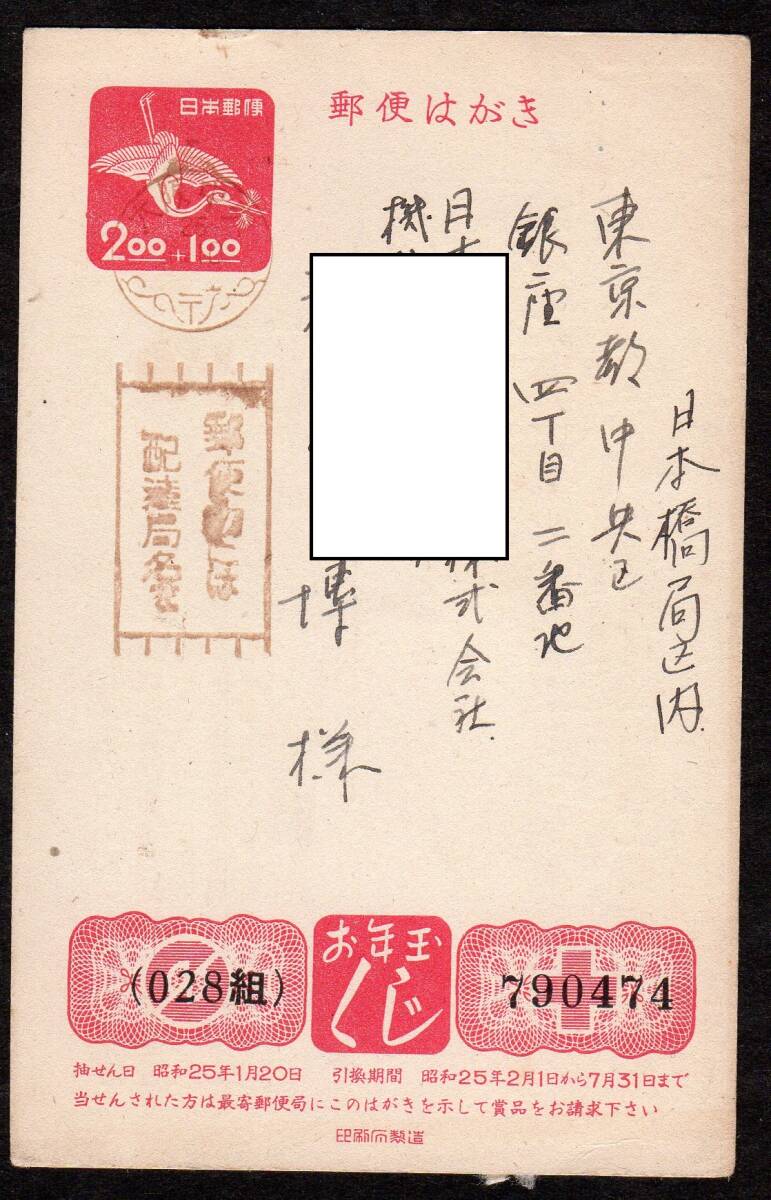 郵便はがき
日本郵便
2.00+1.00
日本橋局区内
東京都中央区
銀座四丁目二番地
日本
株式会社
機
博様
郵便物には
配達局名を
お年玉
くじ
(028組)
790474
抽せん日 昭和25年1月20日 引換期間 昭和25年2月1日から7月31日まで
当せんされた方は最寄郵便局にこのはがきを示して賞品をお請求下さい
印刷庁製造